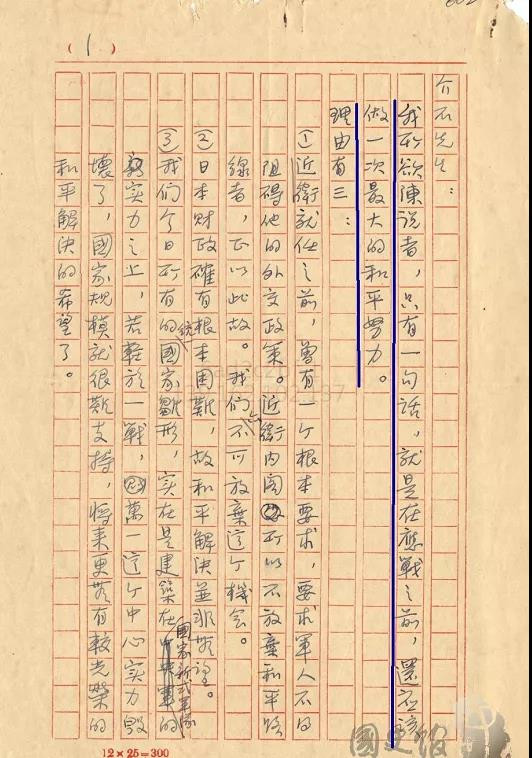 (1)
介石先生：
我所欲陳說者，只有一句話，就是在應戰之前，還應該
做一次最大的和平努力。
理由有三：
①近衛就任之前，曾有一个根本要求，要求軍人不得
阻碍他的外交政策。近衛內閣所以不放棄和平路
線者，正以此故。我们不可放棄這个機会。
②日本財政確有根本困難，故和平解決並非無望。
③我们今日所有的統一國家雛形，实在是建築在國家新式軍隊的
实力之上，若輕於一戰，萬一這个中心实力毀
壞了，國家規模就很難支持，將来更無有較光榮的
和平解決的希望了。
12×25=300
國史館